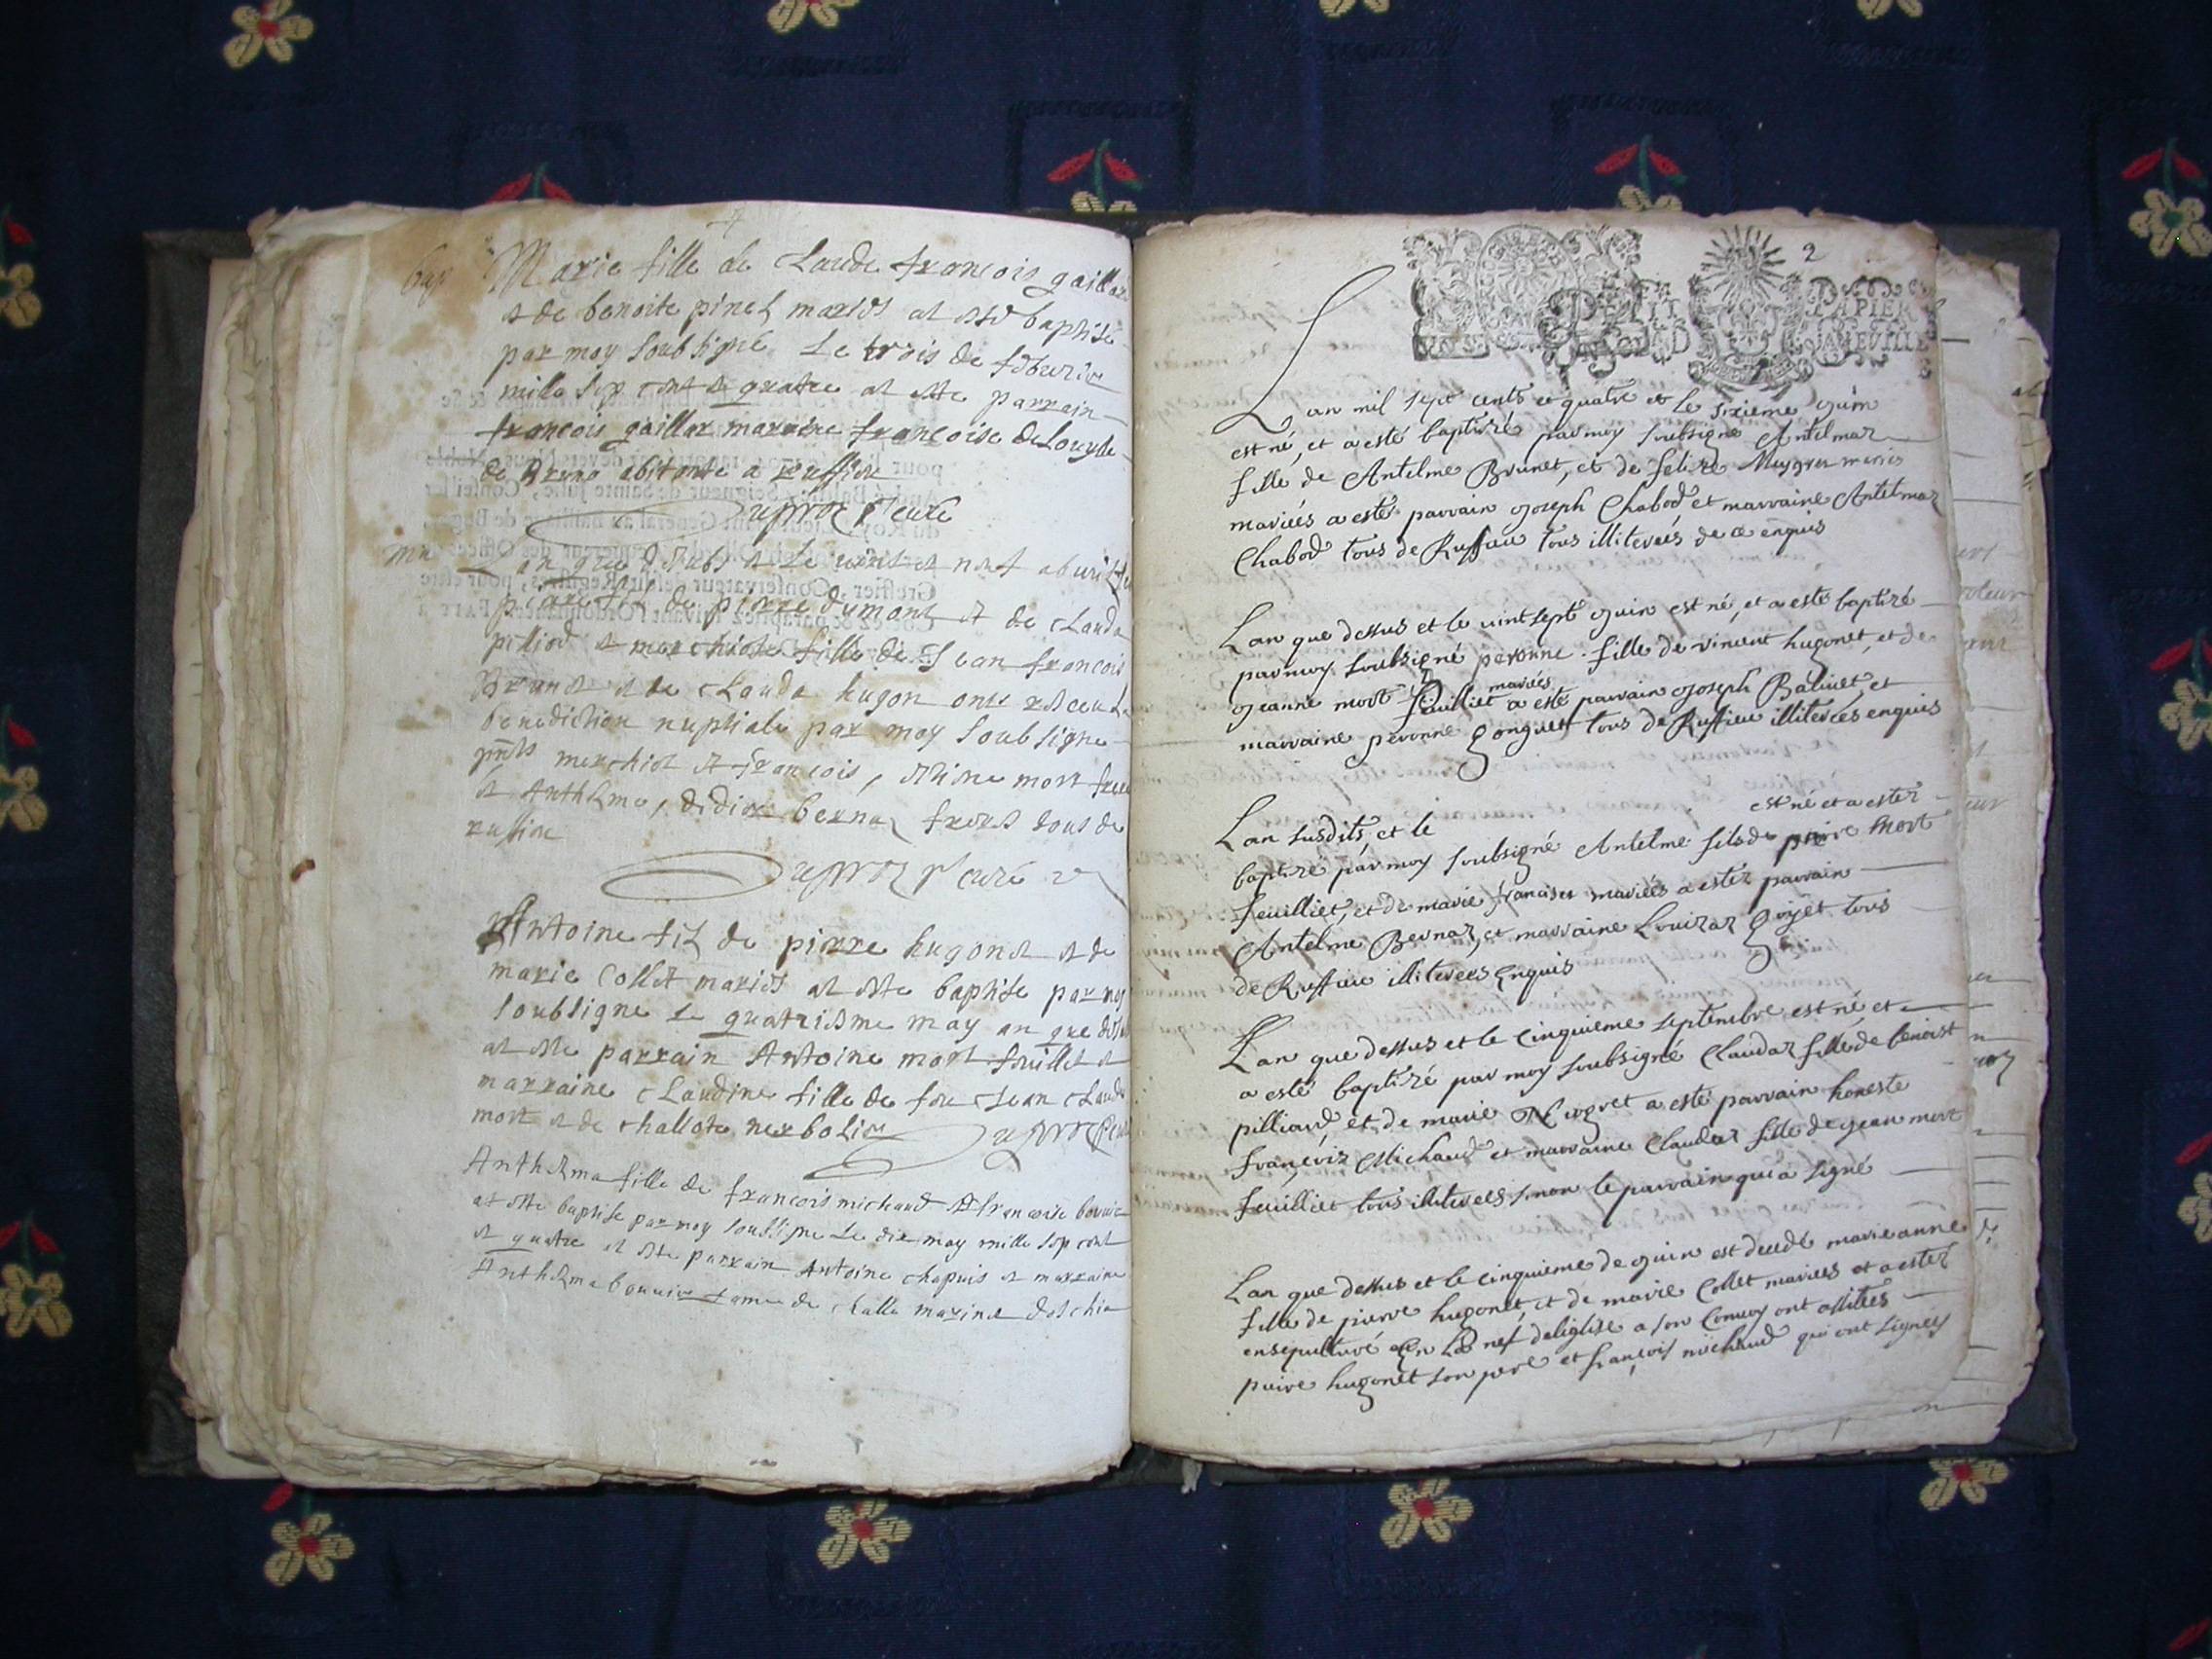 bap
Marie fille de Claude francois gaillar
et de benoite pinet maries at esté baptise
par moy soubsigné Le trois de feburier
mille sep cent et quatre at este parrain
francois gaillar marraine francoise
de abitante a ruffieu
curé
mar
Lan que dessus et Le
pierre fils de pierre dumont et de Clauda
pilliod et fille de Jean francois
Brunet et de Clauda hugon ont receu la
benediction nuptiale par moy soubsigne
francois, mort
et Anthelme, didier bernar freres tous de
ruffieu
curé
Antoine fil de pierre hugonet et de
marie Collet maries at este baptise par moy
soubsigne Le quatriesme may an que dessus
at este parrain Antoine mort feuillet et
marraine Claudine fille de feu Jean Claude
mort et de
Anthelma fille de francois michaud et francoise bouvier
at este baptise par moy soubsigne Le dix may mille sep cent
et quatre at este parrain Antoine chapuis et marraine
Anthelma bouvier femme de
2
PETIT PAPIER
Lan mil sept cents et quatre et le sixieme
est né, et a esté baptizé par moy soubsigné Antelmaz
fille de Antelme Brunet, et de
mariés a esté parrain Joseph Chabod et marraine Antelmaz
Chabod tous de Ruffieu tous illiterés de ce enquis
Lan que dessus et le vint sept Juin est né, et a esté baptizé
par moy soubsigné peronne fille de vincent hugonet, et de
Jeanne mort feuilliet mariés a esté parrain Joseph Balivet, et
marraine peronne gonguet tous de Ruffieu illiterés enquis
Lan susdits, et le est né et a ester
baptizé par moy soubsigné Antelme fils de pierre mort
feuilliet, et de marie mariés a ester parrain
Antelme Bernaz, et marraine Louizaz goyet tous
de Ruffieu illiterés enquis
Lan que dessus et le cinquieme septembre est né, et
a esté baptizé par moy soubsigné Claudaz fille de benoist
pilliard, et de marie a esté parrain honeste
françois Michaud et marraine Claudaz fille de Jean mort
feuilliet tous illiterés sinon le parrain qui a signé
Lan que dessus et le cinquieme de Juin est decedé marie anne
fille de pierre hugonet, et de marie Collet mariés et a ester
ensepulturé en La nef de leglise a son Convoy ont assistés
pierre hugonet son pere et françois michaud qui ont signés